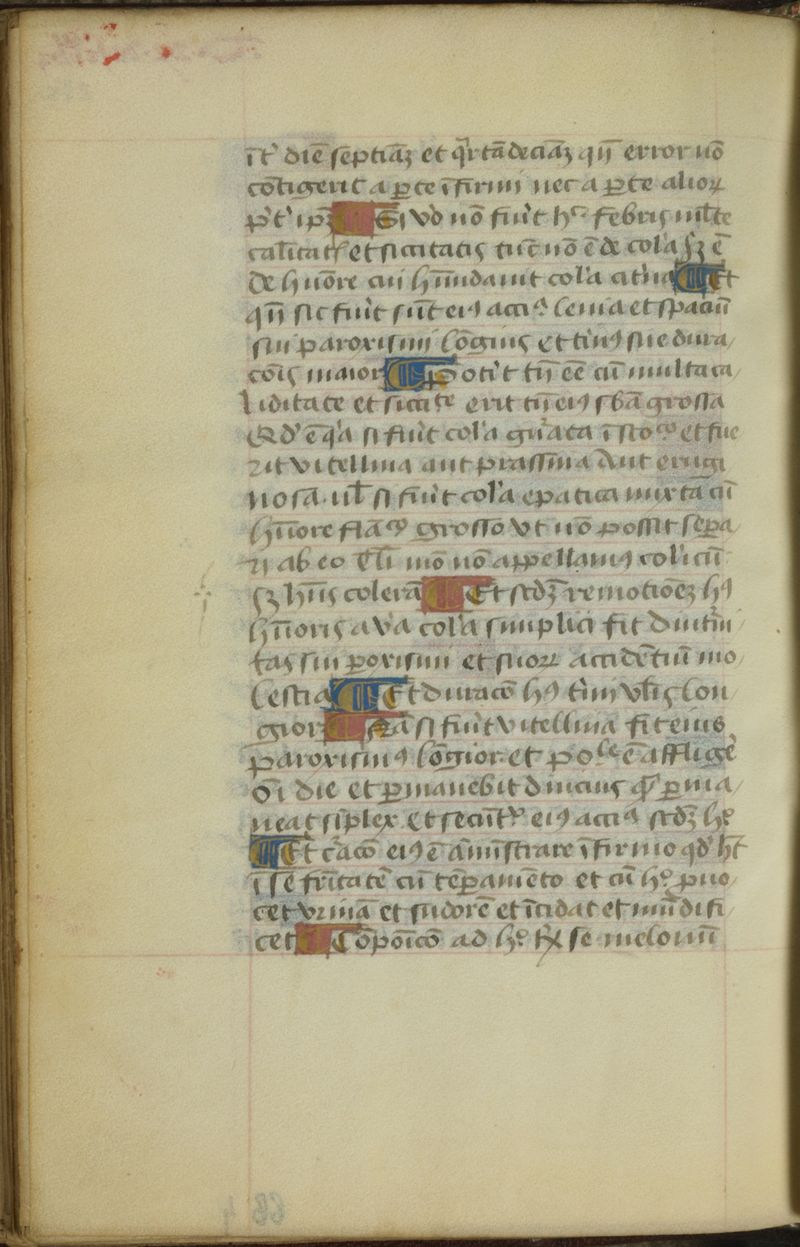 īt̉ diē septiaꝫ et q̄rtādeciaꝫ qn̄ error nō
cōtigerit a ꝑte īfirmi nec a ꝑte alioꝝ
p̄t̉ ip̄ꝫ ¶ Si v̉o nō fiūt hᵉ febris mlte
calitatꝭ et siccitatis tūc nō ē de col̉a sꝫ ē
de hūore cui hūidauit col̉a citīa ¶ Et
qn̄ sic fiūt sūt eiꝰ acciᵃ lenia et spaciū
sui paroxismi lōgius et tīnꝰ sue dura
cōis maior ¶ Potīt tn̄ eē cū multa ca
liditate et siccitᵗᵉ erit tn̄ eiꝰ sb̄a grossa
Qd̓ ē q̉a si fiūt col̉a gn̄ata ī stoᶜᵒ et fue
rit vitellina aut prassina Aut erugi
nosa. ul̄ si fiūt col̉a epatica mixta cū
hūore flāᶜᵒ grosso vt nō possit sepa
ri ab eo tl̄i mō nō appellamꝰ col̉icū
sꝫ hūs colerā ¶ Et scd̓ꝫ remotiōeꝫ hꝰ
hūoris a v̉a col̉a simplici fit diutīni
tas sui ꝑoxismi et suoꝝ accidētiū mo
lestia ¶ Et duracō hꝰ tīni vl̄is lon
gior ¶ Nā si fiūt vitellina fit eius
paroxismꝰ lōgior et poˡᵉ ē affligē
ōi die et ꝑmanebit diucius ꝙ̄ ꝑma
neat sīplex et secūtᵘʳ eiꝰ acciᵃ scd̓ꝫ hᵉ
¶ Et c̉acō eiꝰ ē ām̄istrare īfirmo qd̓ hꝫt
ī se frītatē cū tēpamēto et cū hᵉ ꝓuo
cet vrinā et sudorē et īcidat et mūdifi
cet ¶ Cōpoīcō ad hᵉ Rx se melonū